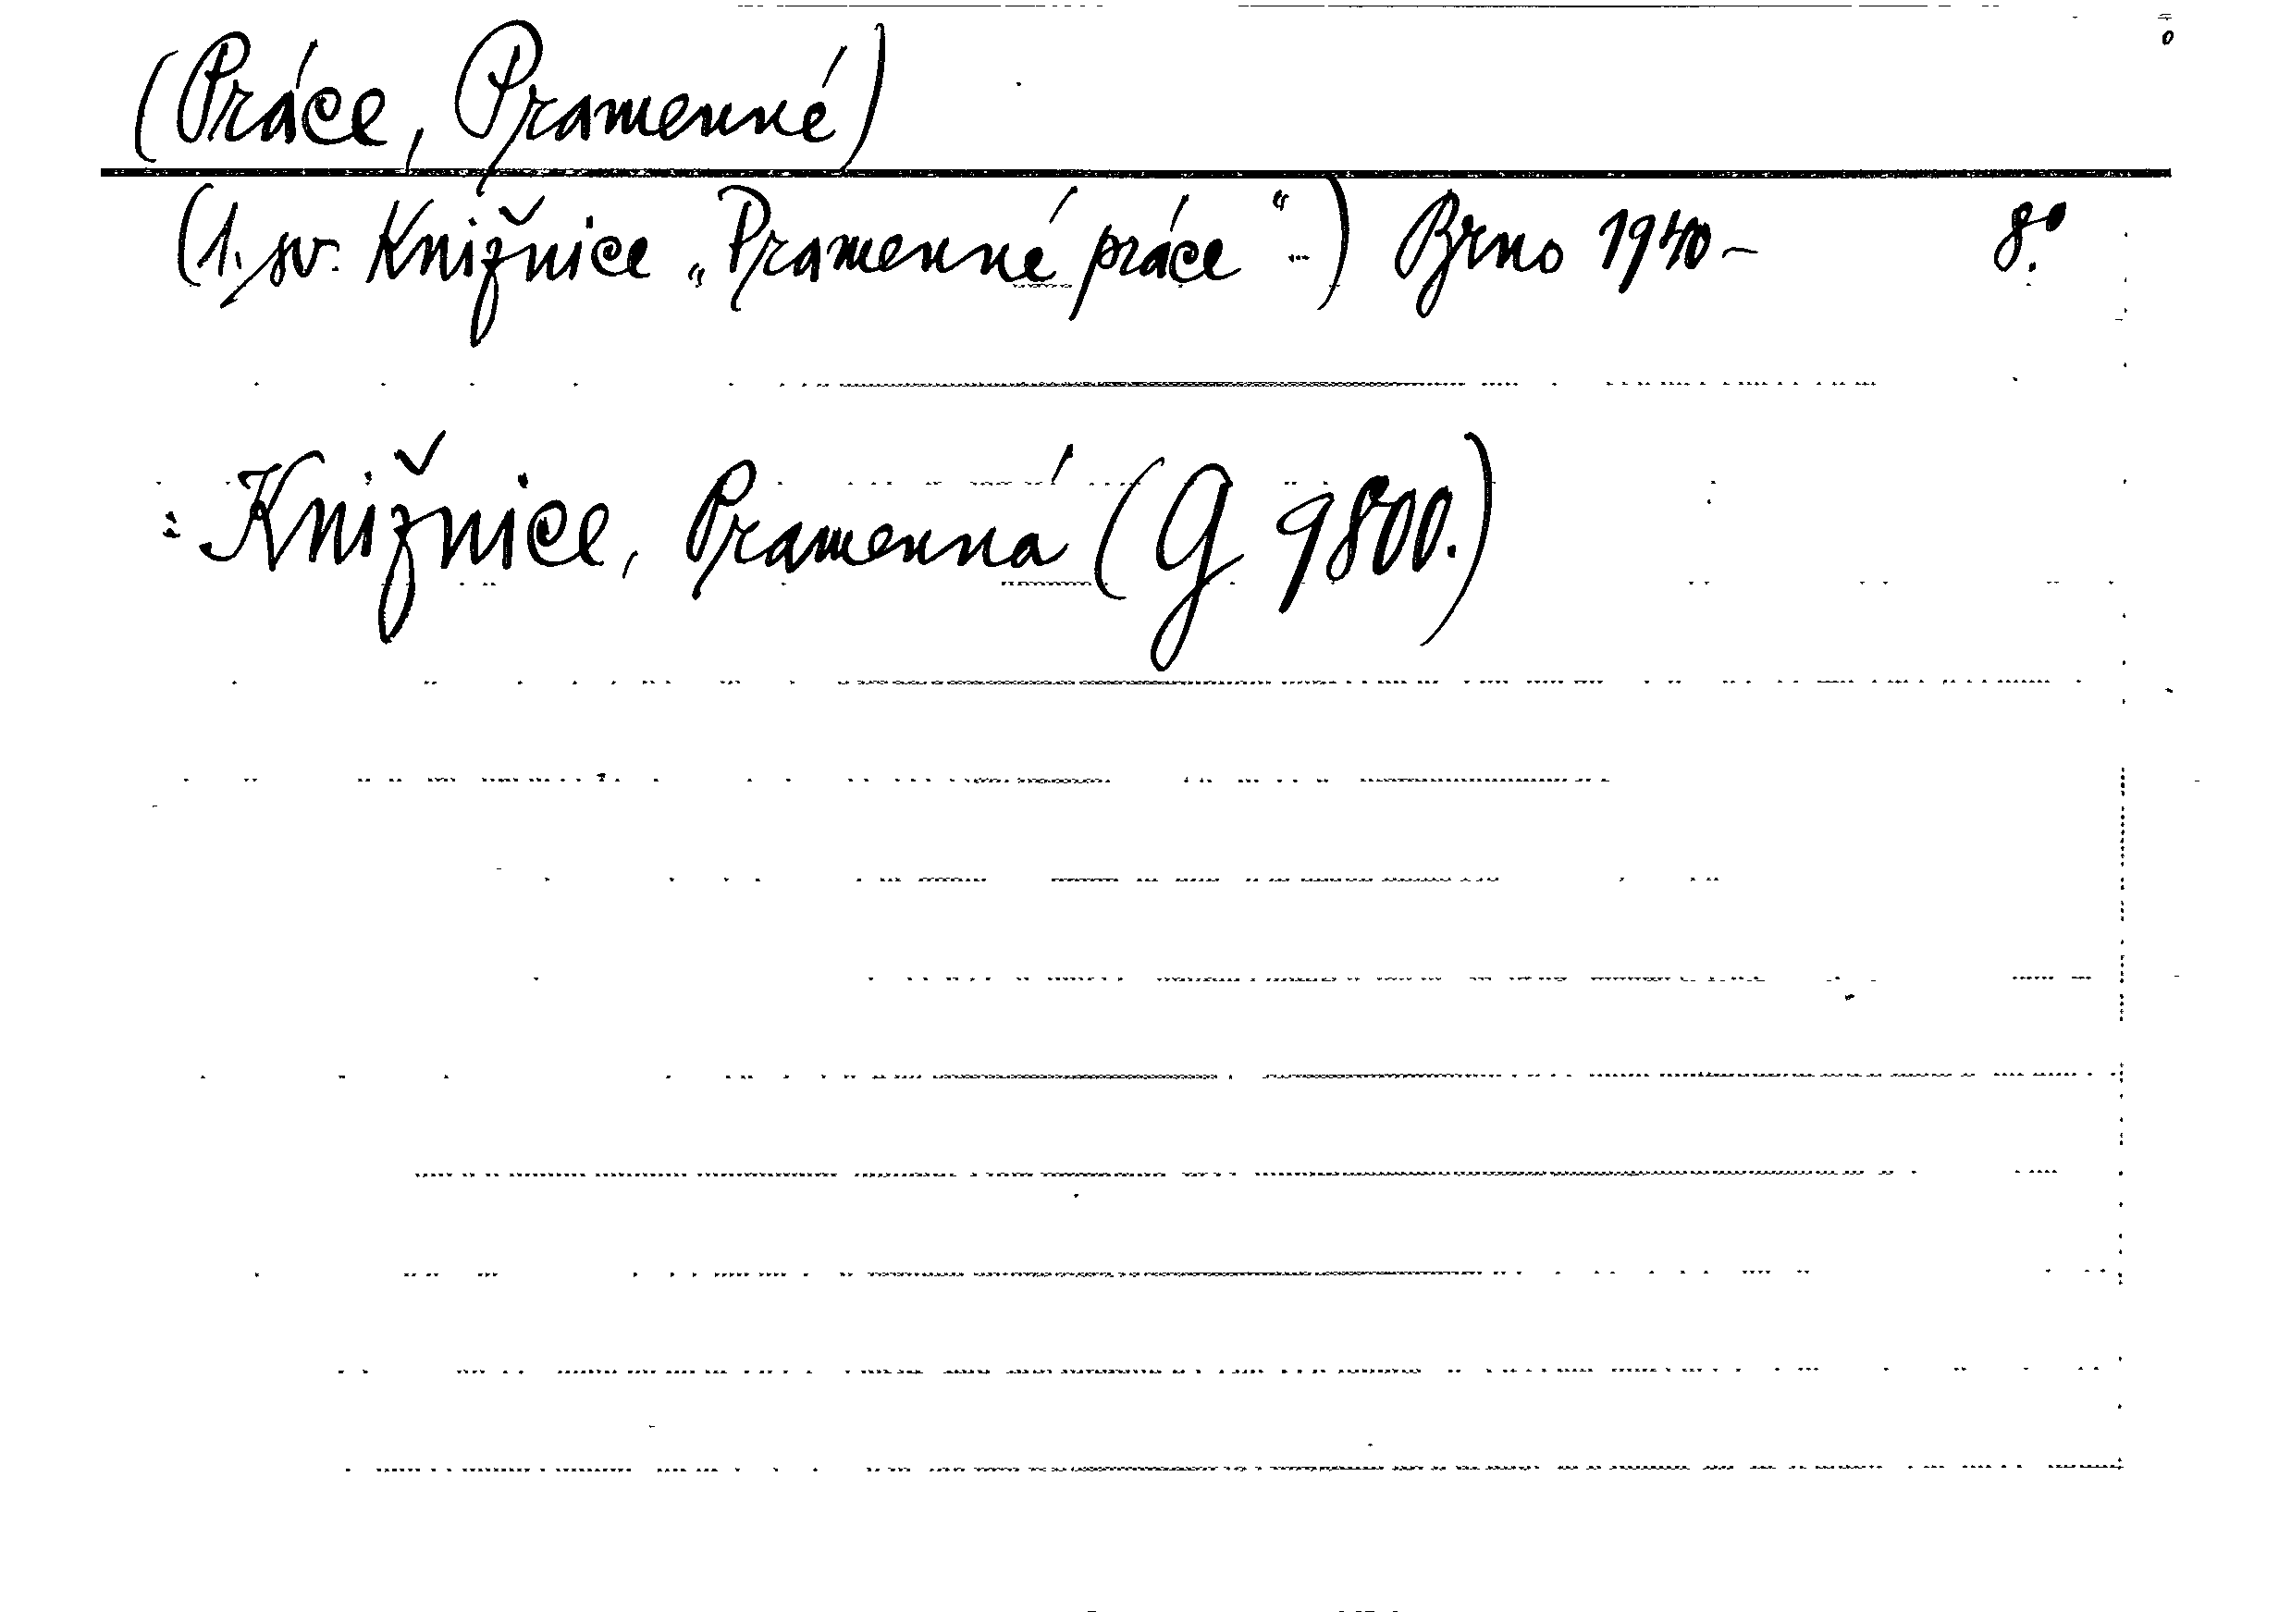 (Práce, Pramenné)
(1. sv. Knižnice „Pramenné práce“...) Brno 1940– 8°.
: Knižnice, Pramenná (G 9800.)